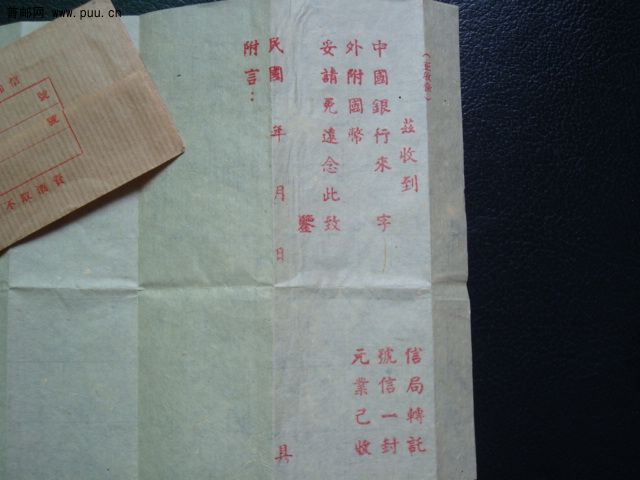 首邮网 www.puu.cn
茲收到 信局轉託
中國銀行來 字 號信一封
外附國幣 元業已收
妥請免遠念此致
鑒
民國 年 月 日 具
附言：
信
號
號
不取酒資